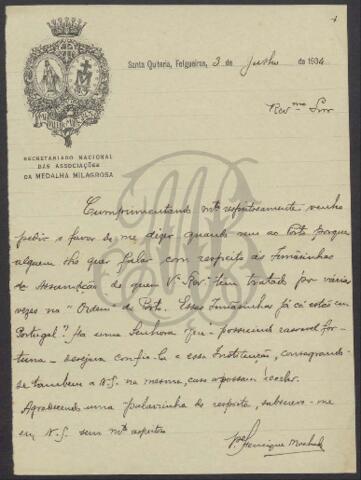 Santa Quiteria, Felgueiras, 3 de Julho de 1934
Revmo Snr
SECRETARIADO NACIONAL
DAS ASSOCIAÇÕES
DA MEDALHA MILAGROSA
Cumprimentando mto respeitosamente venho
pedir o favor de me dizer quando vem ao Porto porque
alguem lhe quer falar com respeito ás Irmãsinhas
de Assumpção de quem Va Rev. tem tratado por varia
vezes na "Ordem do Porto. Essas Irmãsinhas já cá estão em
Portugal? Ha uma Senhora que possuindo rasoavel for-
tuna - desejava confia-la a essa Instituição, consagrando-
se tambem a N.S. na mesma, caso a possam receber.
Agradecendo uma palavrinha de resposta, subscrevo-me
em N.S. com mto respeito
Pe Henrique Machado